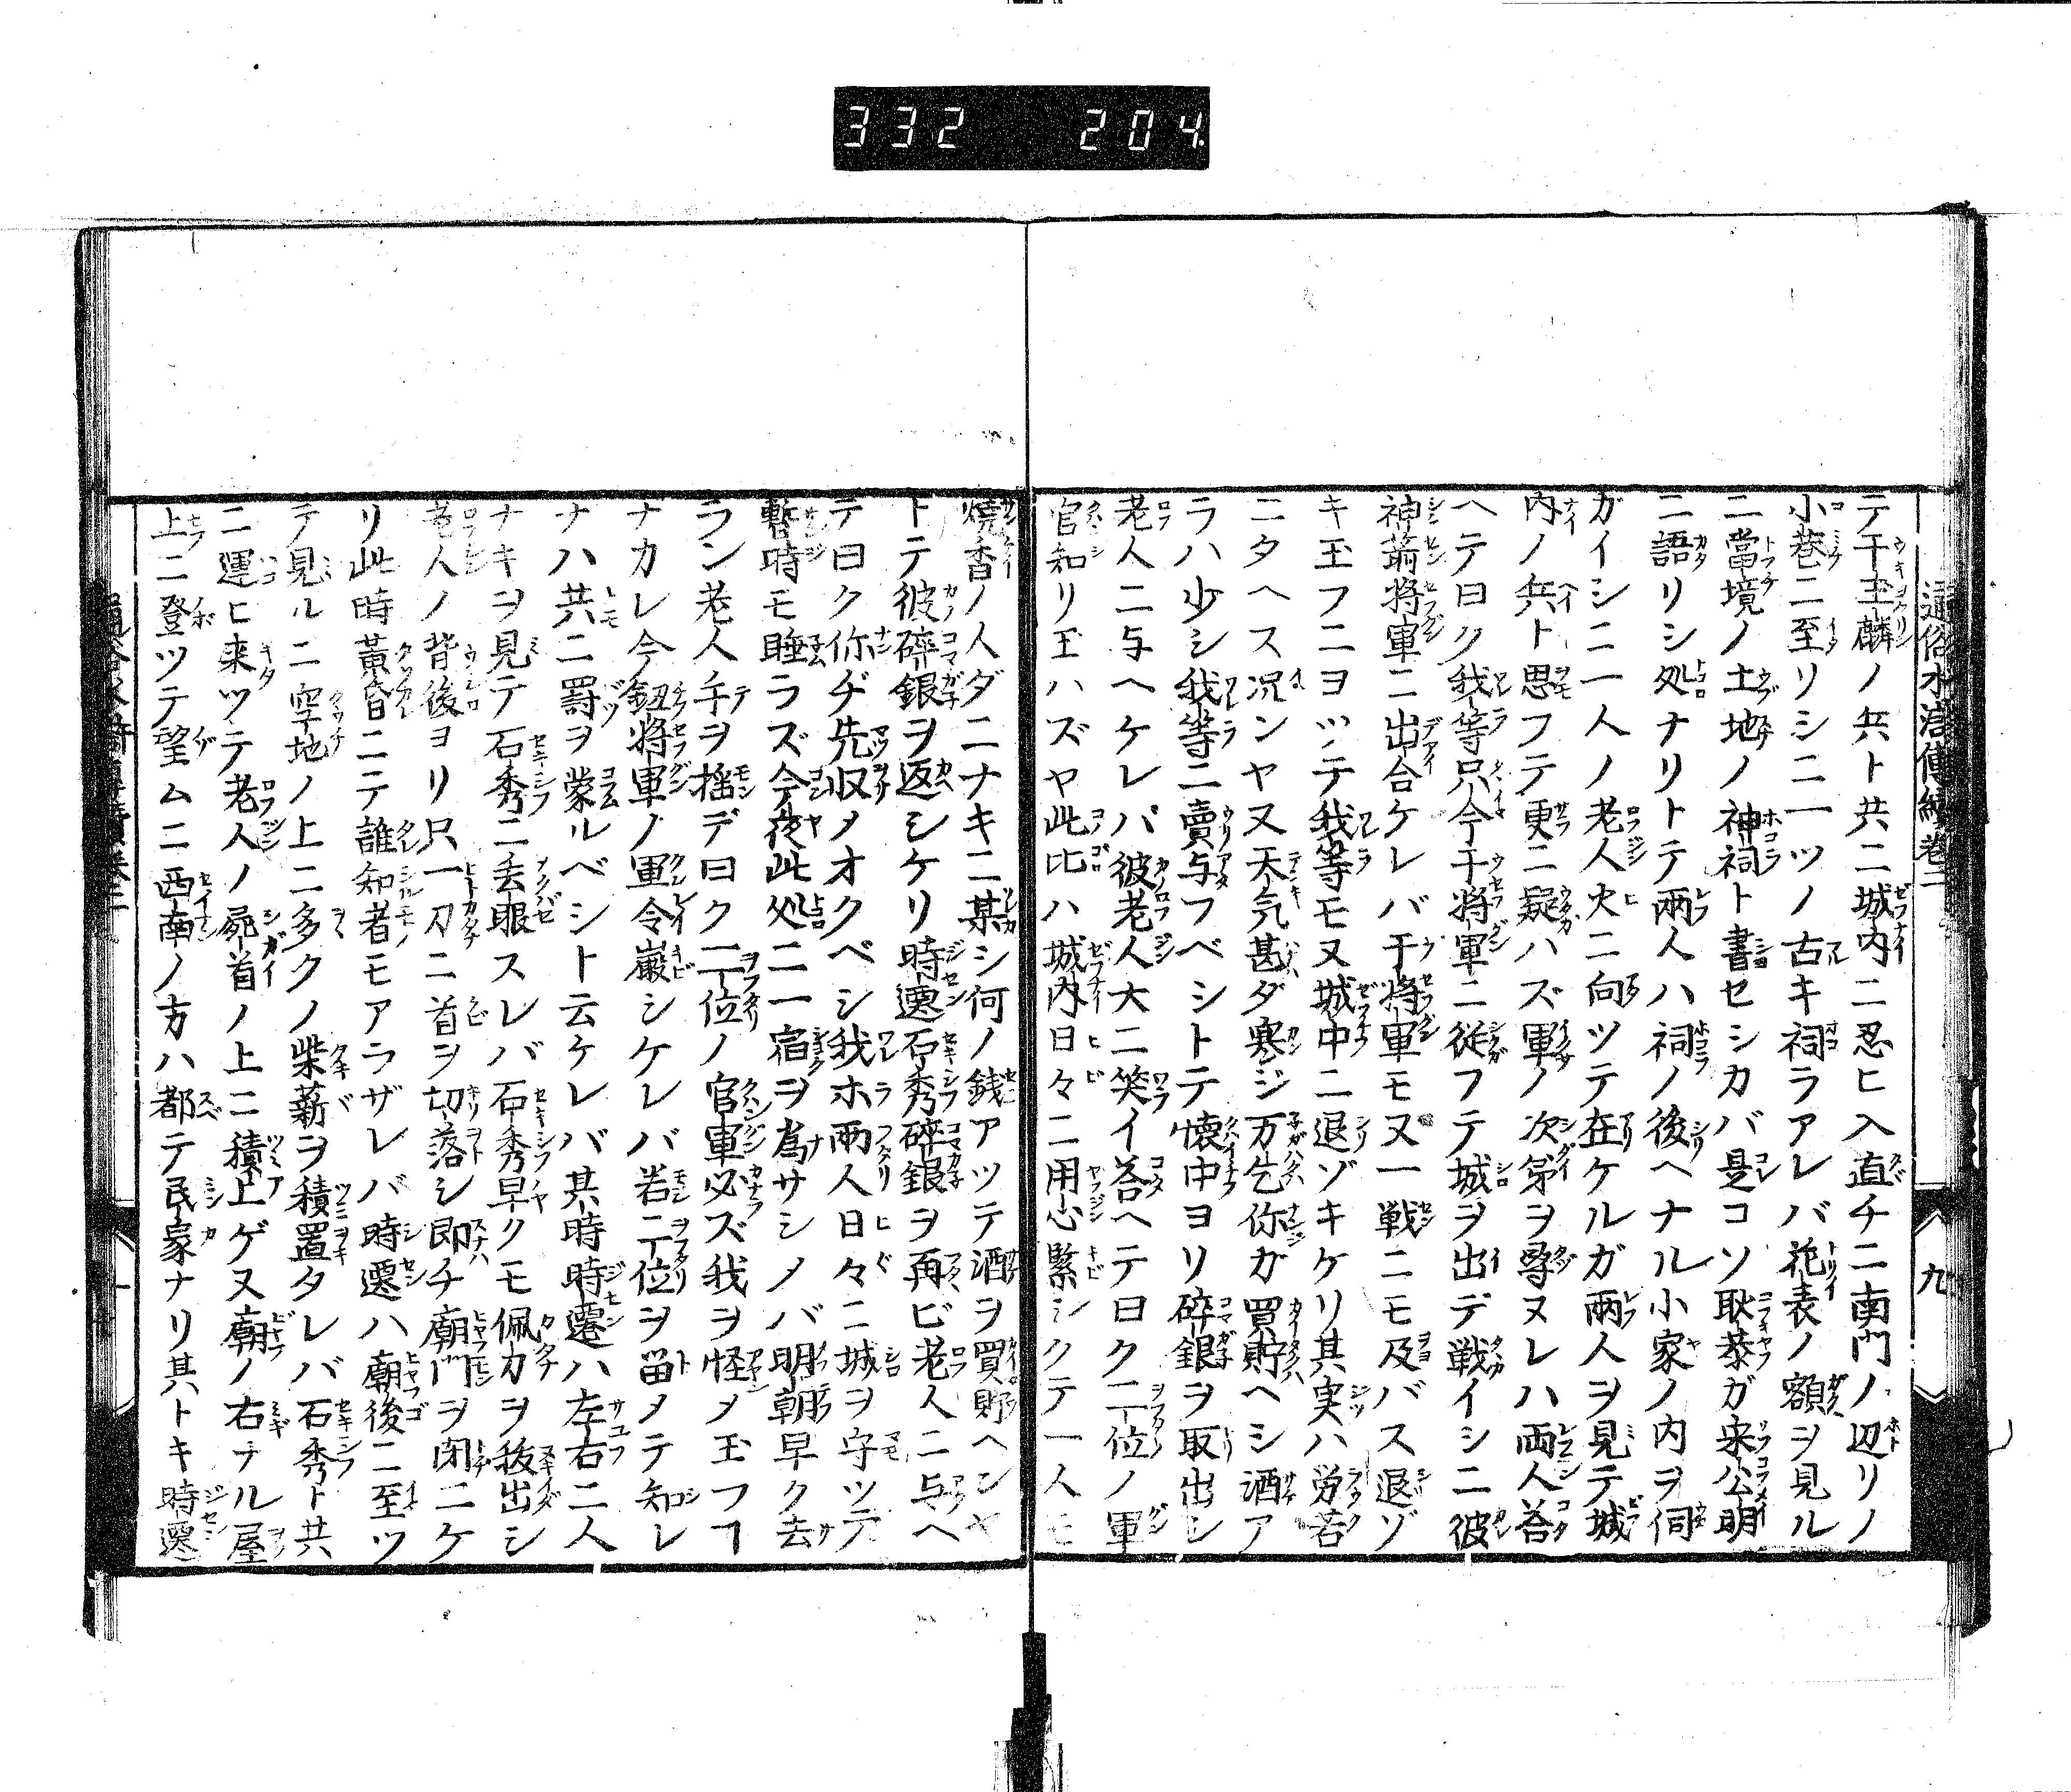 332 204
通俗水滸傳續巻二
九
テ于玉麟ノ兵ト共ニ城内ニ忍ヒ入直チニ南門ノ辺リノ
小巷ニ至リシニ一ツノ古キ祠ラアレバ花表ノ額ヲ見ル
ニ當境ノ土地ノ神祠ト書セシカバ是コソ耿恭ガ宋公明
ニ語リシ処ナリトテ兩人ハ祠ノ後ヘナル小家ノ内ヲ伺
ガイシニ一人ノ老人火ニ向ツテ在ケルガ兩人ヲ見テ城
内ノ兵ト思フテ更ニ疑ハズ軍ノ次第ヲ尋ヌレハ両人荅
ヘテ曰ク我等只今于将軍ニ従フテ城ヲ出デ戦イシニ彼
神箭将軍ニ出合ケレバ于将軍モ又一戦ニモ及バス退ゾ
キ玉フニヨツテ我等モ又城中ニ退ゾキケリ其実ハ労苦
ニタヘス况ンヤ又天気甚ダ寒ジ万乞你ガ買貯ヘシ酒ア
ラハ少シ我等ニ賣与フベシトテ懐中ヨリ碎銀ヲ取出シ
老人ニ与ヘケレバ彼老人大ニ笑イ荅ヘテ曰ク二位ノ軍
官知リ玉ハズヤ此比ハ城内日々ニ用心緊シクテ一人モ
焼香ノ人ダニナキニ某シ何ノ銭アツテ酒ヲ買貯ヘンヤ
トテ彼碎銀ヲ返シケリ時遷石秀碎銀ヲ再ビ老人ニ与ヘ
テ曰ク你ヂ先収メオクベシ我ホ兩人日々ニ城ヲ守ツテ
暫時モ睡ラズ今夜此処ニ一宿ヲ為サシメバ明朝早ク去
ラン老人手ヲ揺デ曰ク二位ノ官軍必ズ我ヲ怪メ玉フヿ
ナカレ今鈕将軍ノ軍令嚴シケレバ若二位ヲ畄メテ知レ
ナハ共ニ罸ヲ蒙ルベシト云ケレバ其時時遷ハ左右ニ人
ナキヲ見テ石秀ニ丢眼スレバ石秀早クモ佩刀ヲ抜出シ
老人ノ背後ヨリ只一刀ニ首ヲ切落シ即チ廟門ヲ閉ニケ
リ此時黄昏ニテ誰知者モアラザレバ時遷ハ廟後ニ至ツ
テ見ルニ空地ノ上ニ多クノ柴薪ヲ積置タレバ石秀ト共
ニ運ヒ来ツテ老人ノ屍首ノ上ニ積上ゲ又廟ノ右ナル屋
上ニ登ツテ望ムニ西南ノ方ハ都テ民家ナリ其トキ時遷